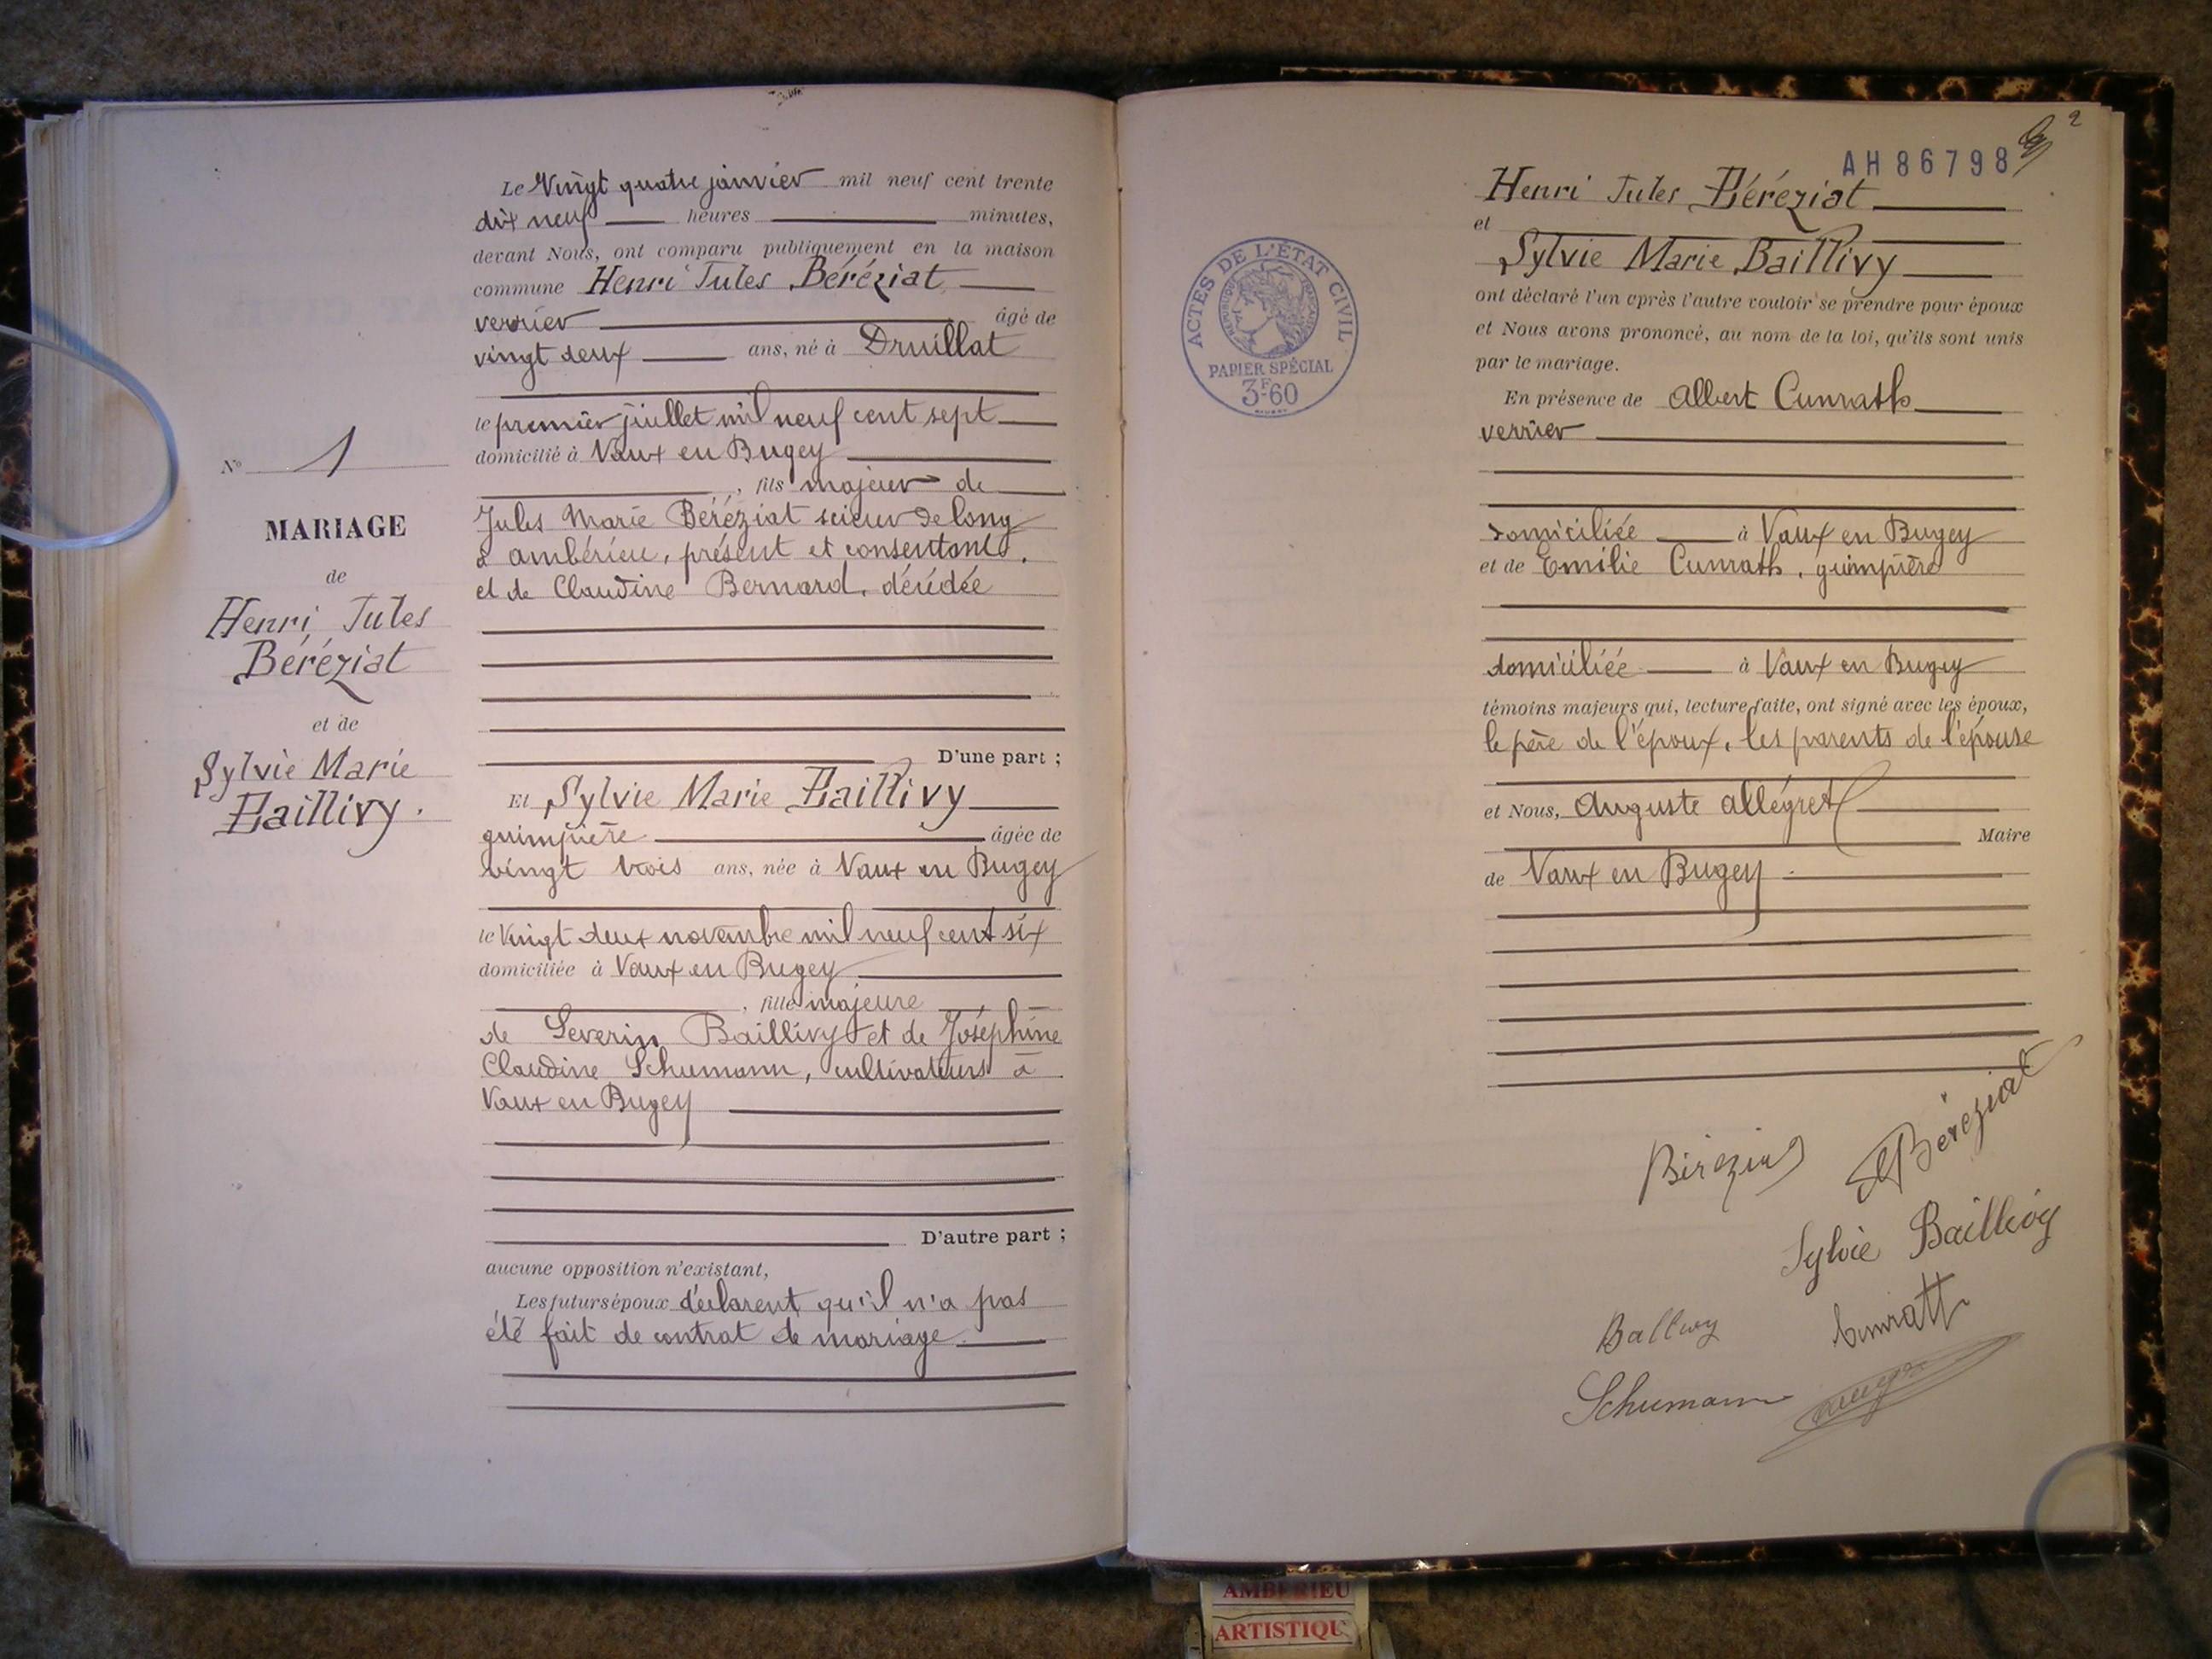 Le Vingt quatre janvier mil neuf cent trente
dix neuf heures minutes,
devant Nous, ont comparu publiquement en la maison
commune Henri Jules Béréziat
verrier âgé de
vingt deux ans, né à Druillat
le premier juillet mil neuf cent sept
domicilié à Vaux en Bugey
, fils majeur de
Jules Marie Béréziat scieur de long
à ambérieu, présent et consentant,
et de Claudine Bernard, décédée
D'une part ;
Et Sylvie Marie Baillivy
guimpière âgée de
vingt trois ans, née à Vaux en Bugey
le vingt deux novembre mil neuf cent six
domiciliée à Vaux en Bugey
, fille majeure
de Severin Baillivy et de Joséphine
Claudine Schumann, cultivateurs à
Vaux en Bugey
D'autre part ;
aucune opposition n'existant,
Les futurs époux déclarent qu'il n'a pas
été fait de contrat de mariage.
N° 1
MARIAGE
de
Henri Jules
Béréziat
et de
Sylvie Marie
Baillivy.
2
AH 86798
ACTES DE L'ÉTAT CIVIL
RÉPUBLIQUE FRANÇAISE
PAPIER SPÉCIAL
3F60
Henri Jules Béréziat
et
Sylvie Marie Baillivy
ont déclaré l'un après l'autre vouloir se prendre pour époux
et Nous avons prononcé, au nom de la loi, qu'ils sont unis
par le mariage.
En présence de Albert Cunrath
verrier
domiciliée à Vaux en Bugey
et de Emilie Cunrath, guimpière
domiciliée à Vaux en Bugey
témoins majeurs qui, lecture faite, ont signé avec les époux,
le père de l'époux, les parents de l'épouse
et Nous, Auguste Allégret
Maire
de Vaux en Bugey
Béréziat
Sylvie Baillivy
Schumann
AMBERIEU
ARTISTIQU